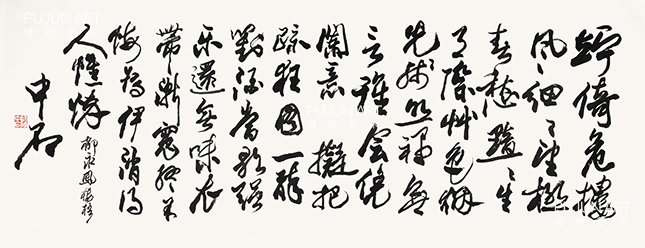 竚倚危樓
風細〻望極
春愁黯〻生
天際草色烟
光殘照裡無
言誰會凭
闌意擬把
疏狂圖一醉
對酒當歌強
樂還無味衣
帶漸寬終不
悔為伊消得
人憔悴 柳永鳳棲梧
中石
PUJUN ART